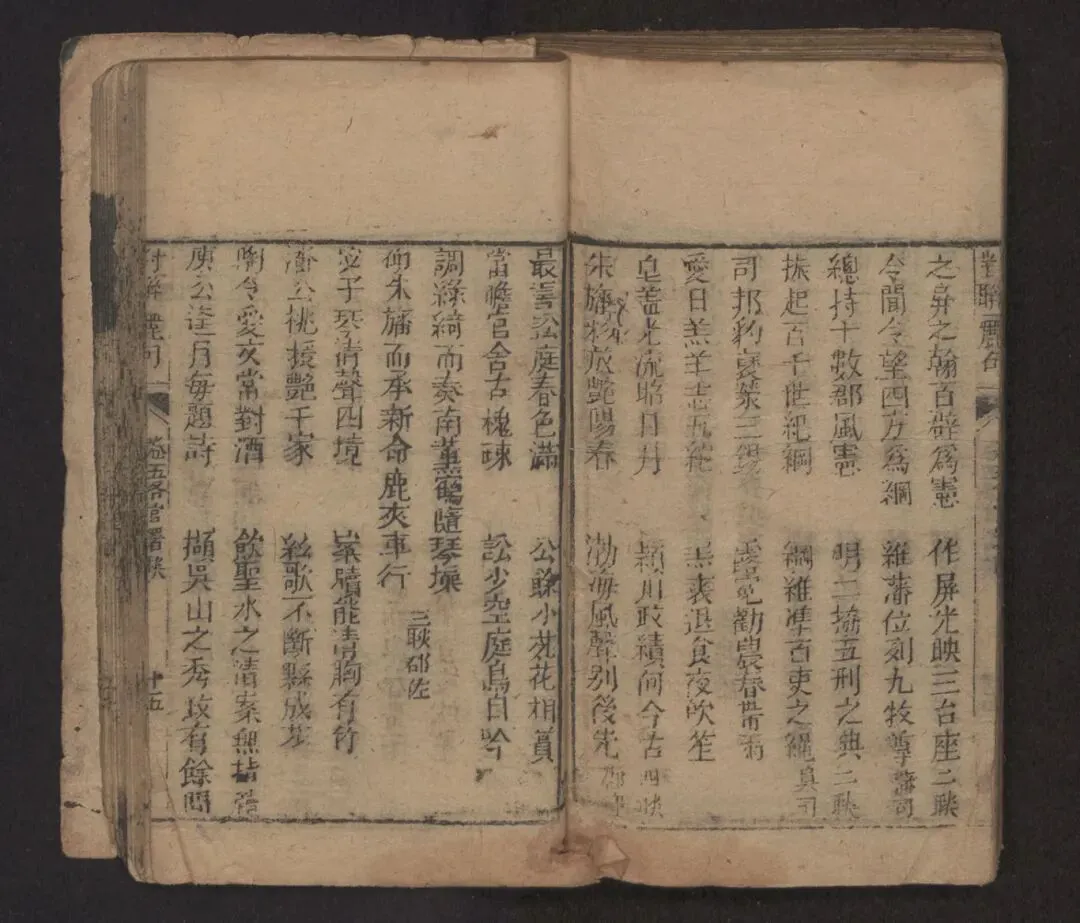 對聯麗句
之屏之翰百辟爲憲 作屏光映三台座二聯
令聞令望四方爲綱 維藩位列九牧尊藩司
總持十數郡風憲 明二協五刑之典二聯
振起百千世紀綱 綱維準百吏之繩臬司
司邦豹 三 勸農春帶雨
愛日羔羊志 退食夜吹笙
皂盖光流昭日月 潁川政績何今古四聯
朱旛 放艷陽春 渤海風聲別後先
最喜訟庭春色滿 公餘小苑花相賞
當瞻官舍古槐疎 訟少空庭鳥自吟
調綠綺而奏南薰鶴隨琴操
御朱旛而承新命鹿夾車行 三聯郡佐
宓子琴清聲四境 案牘能清胸有竹
潘公桃援艷千家 絃歌不斷縣成花
陶令愛友常對酒 飲聖水之清案無
庾公逢月每題詩 擷吳山之秀政有餘閒
對聯麗句 卷五各官署聯 十五